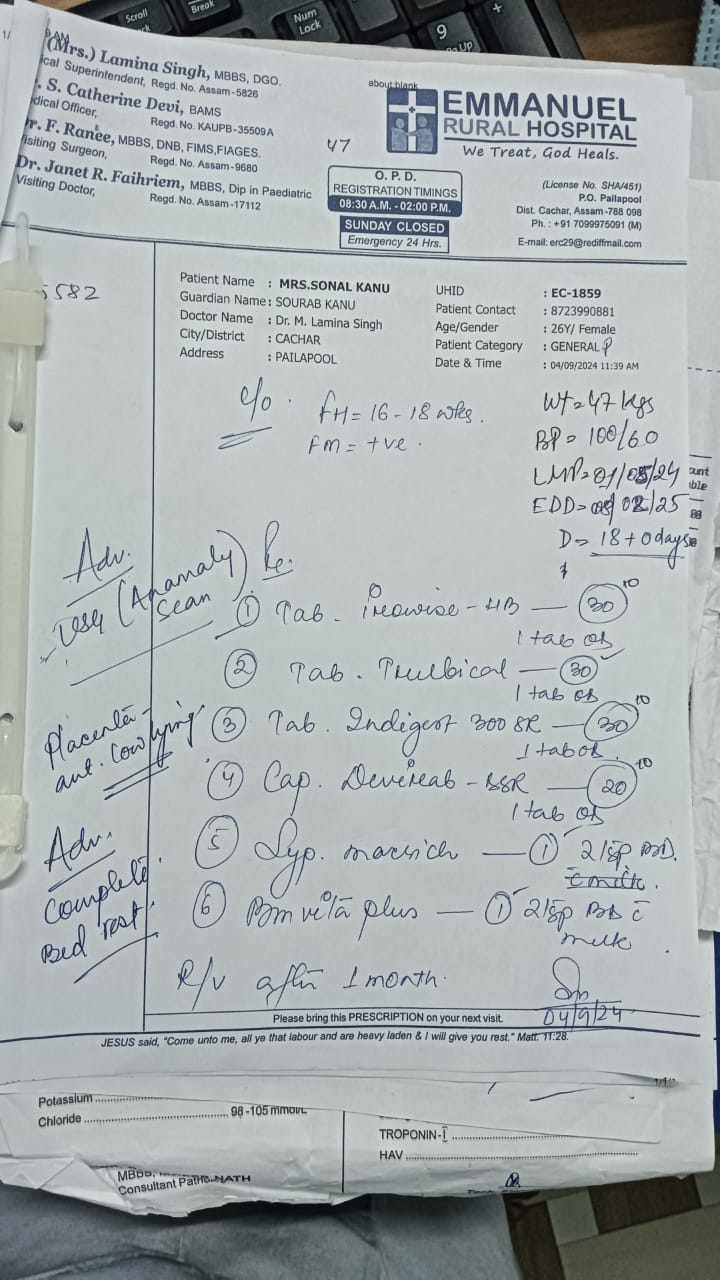 Scroll
Break
Num
Lock
9
Pg Up
+
1/
9 AM
(Mrs.) Lamina Singh, MBBS, DGO.
ical Superintendent, Regd. No. Assam-5826
. S. Catherine Devi, BAMS
dical Officer, Regd. No. KAUPB-35509A
r. F. Ranee, MBBS, DNB, FIMS,FIAGES.
isiting Surgeon, Regd. No. Assam-9680
Dr. Janet R. Faihriem, MBBS, Dip in Paediatric
Visiting Doctor, Regd. No. Assam-17112
47
about:blank
EMMANUEL
RURAL HOSPITAL
We Treat, God Heals.
O. P. D.
REGISTRATION TIMINGS
08:30 A.M. - 02:00 P.M.
SUNDAY CLOSED
Emergency 24 Hrs.
(License No. SHA/451)
P.O. Pallapool
Dist. Cachar, Assam-788 098
Ph. : +91 7099975091 (M)
E-mail: erc29@rediffmail.com
5582
Patient Name : MRS.SONAL KANU
Guardian Name : SOURAB KANU
Doctor Name : Dr. M. Lamina Singh
City/District : CACHAR
Address : PAILAPOOL
UHID : EC-1859
Patient Contact : 8723990881
Age/Gender : 26Y/ Female
Patient Category : GENERAL
Date & Time : 04/09/2024 11:39 AM
c/o. FH = 16 - 18 wks.
FM = +ve.
Wt = 47 kgs
BP = 100/60
LMP = 01/05/24
EDD = 08/02/25
D = 18 + 0 days
Adv.
USG (Anamaly) Scan
Placenta -
ant. low lying
Adv.
Complete
Bed rest.
Rx.
① Tab. - HB — 30
1 tab od
② Tab. — 30
1 tab od
③ Tab. Indigest 300 SR — 30
1 tab od.
④ Cap. - BSR — 20
1 tab od
⑤ Syp. — ① 2 tsp BD.
c milk.
⑥ Bm vita plus — ① 2 tsp BD c
milk
R/v after 1 month.
04/9/24
Please bring this PRESCRIPTION on your next visit.
JESUS said, "Come unto me, all ye that labour and are heavy laden & I will give you rest." Matt. 11:28.
1/1
Potassium
Chloride 98-105 mmol/L
TROPONIN-I
HAV
MBBS,
Consultant Patho
NATH
ount
ble